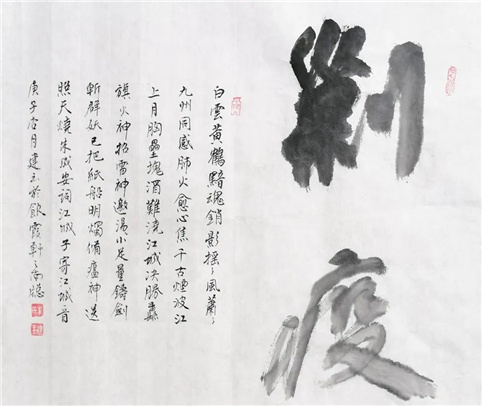 剿疫
白雲黃鶴黯魂銷影搖々風蕭々
九州同感肺火愈心焦千古煙波江
上月胸壘塊酒難澆江城決勝纛
旗火神招雷神邀湯小足量鑄劍
斬群妖已把紙船明燭備瘟神送
照天燒朱成安詞江城子寄江城首
庚子杏月建立於飲霞軒之南牕